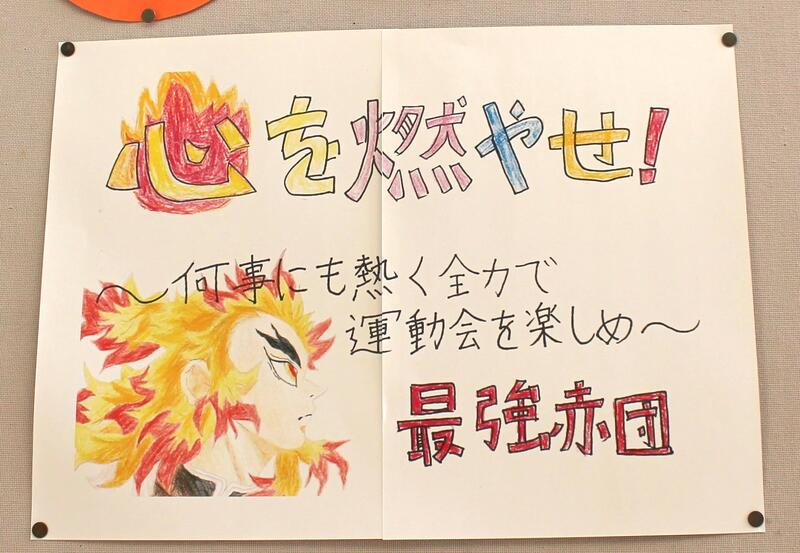 心を燃やせ!
〜何事にも熱く全力で
運動会を楽しめ〜
最強赤団